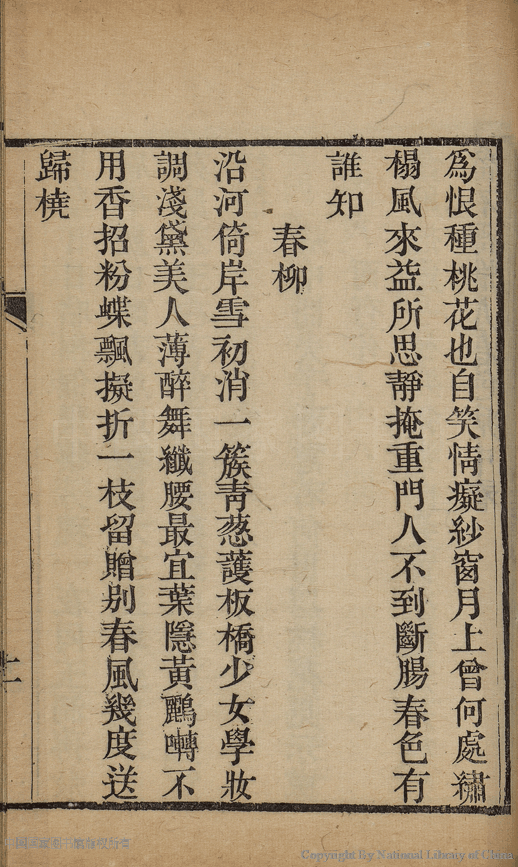 爲恨種桃花也自笑情癡紗窗月上曾何處繡
榻風來益所思靜掩重門人不到斷腸春色有
誰知
春柳
沿河倚岸雪初消一簇靑葱護板橋少女學妝
調淺黛美人薄醉舞纖腰最宜葉隱黃鸝囀不
用香招粉蝶飄擬折一枝留贈別春風幾度送
歸橈
Copyright By National Library of China